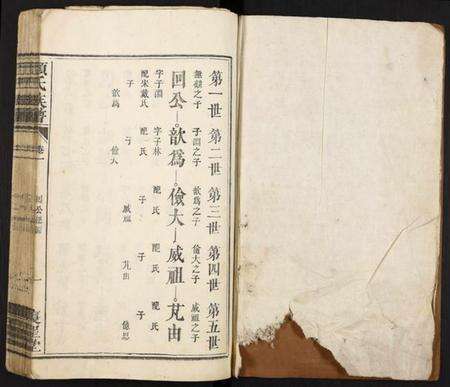 第一世 第二世 第三世 第四世 第五世
無繇之子 子淵之子 歆為之子 儉大之子 威祖之子
回公 歆爲 儉大 威祖 芃由
字子淵 字子林
配宋戴氏 配氏 配氏 配氏 配氏
子 子 子 子 子
歆爲 儉大 威祖 芃由 億思
氏族譜
卷一
回公